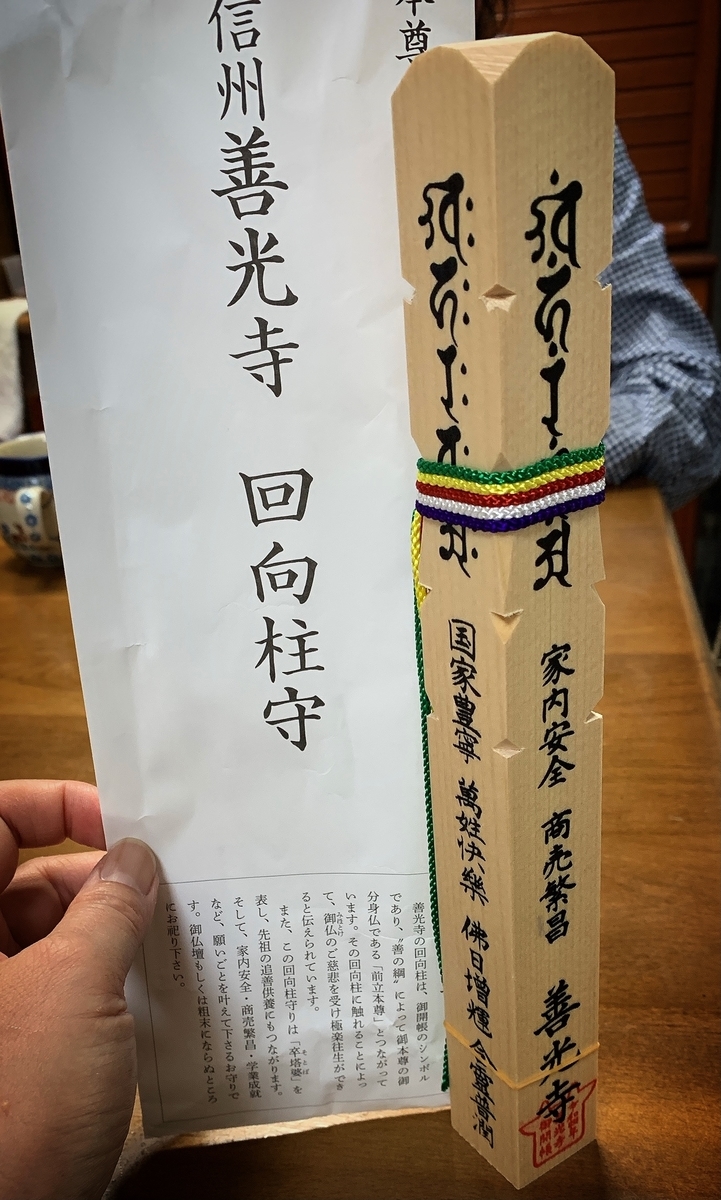 本尊
信州善光寺 回向柱守
善光寺の回向柱は、御開帳のシンボル
であり、〝善の綱〟によって御本尊の御
分身仏である「前立本尊」とつながって
います。その回向柱に触れることによっ
て、御仏のご慈悲を受け極楽往生ができ
ると伝えられています。
また、この回向柱守りは「卒塔婆」を
表し、先祖の追善供養にもつながります。
そして、家内安全・商売繁昌・学業成就
など、願いごとを叶えて下さるお守りで
す。御仏壇もしくは粗末にならぬところ
にお祀り下さい。
家内安全 商売繁昌 善光寺
国家豊寧 萬姓快樂 佛日増輝 含靈普潤
御開帳